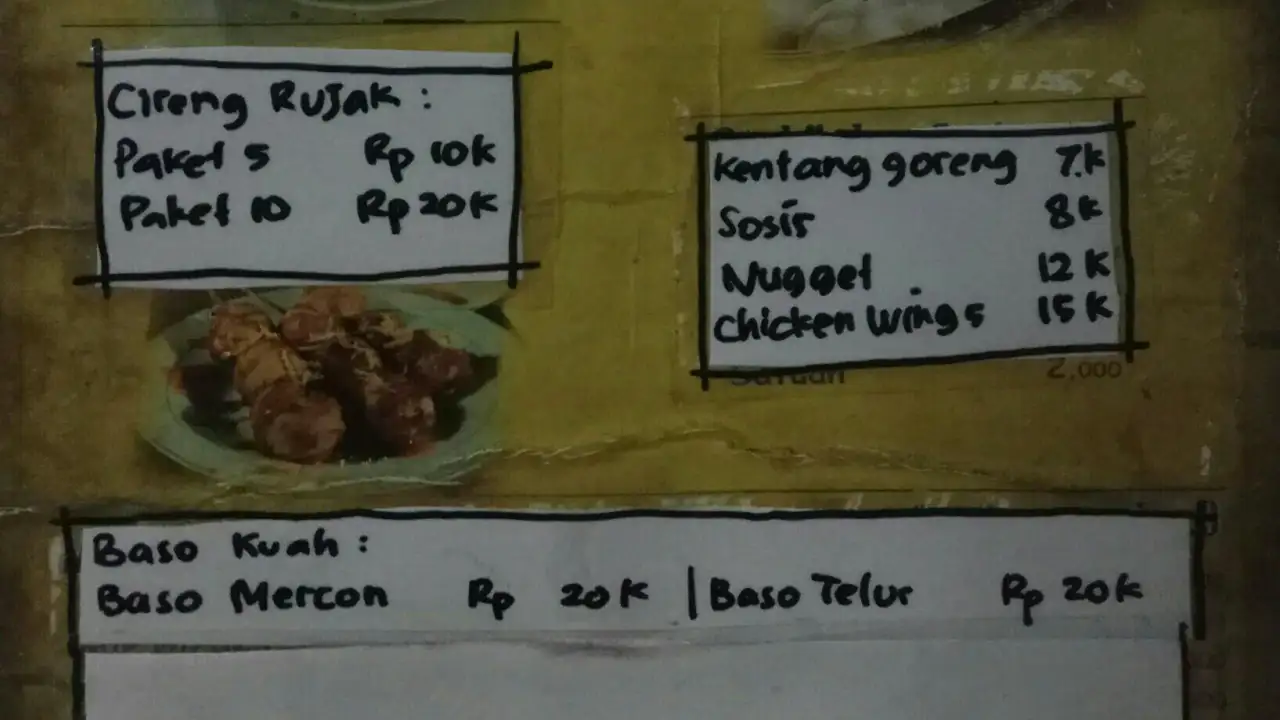 Cireng Rujak :
Paket 5 Rp 10K
Paket 10 Rp 20K
Kentang goreng 7.K
Sosis 8K
Nugget 12 K
Chicken Wings 15K
2.000
Baso Kuah :
Baso Mercon Rp 20K | Baso Telur Rp 20K